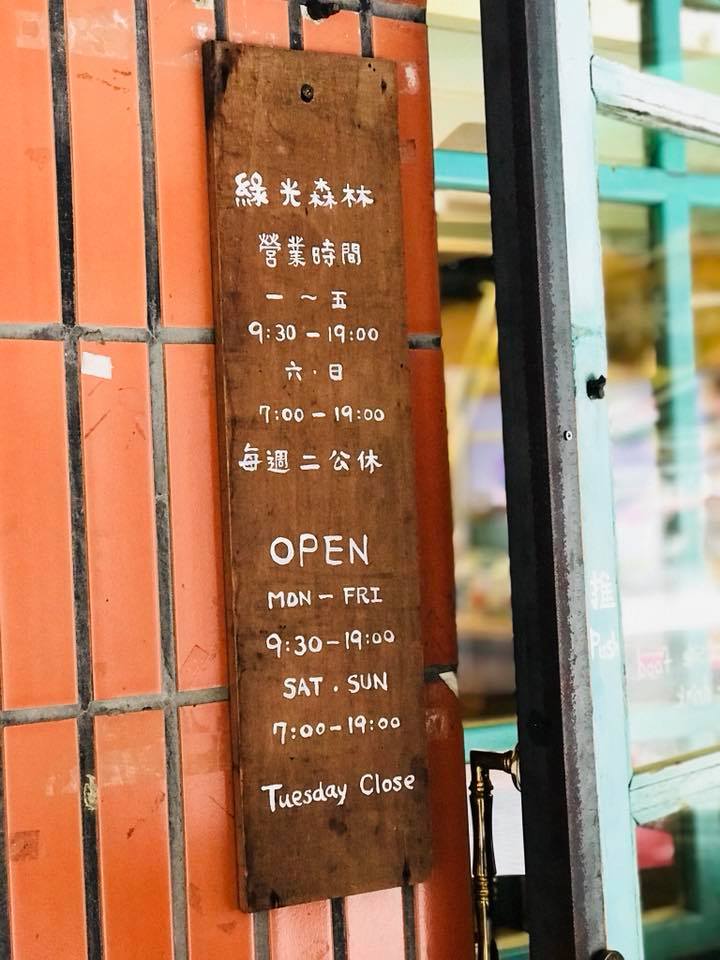 綠光森林
營業時間
一～五
9:30－19:00
六．日
7:00－19:00
每週二公休
OPEN
MON－FRI
9:30－19:00
SAT．SUN
7:00－19:00
Tuesday Close
推
Push
food